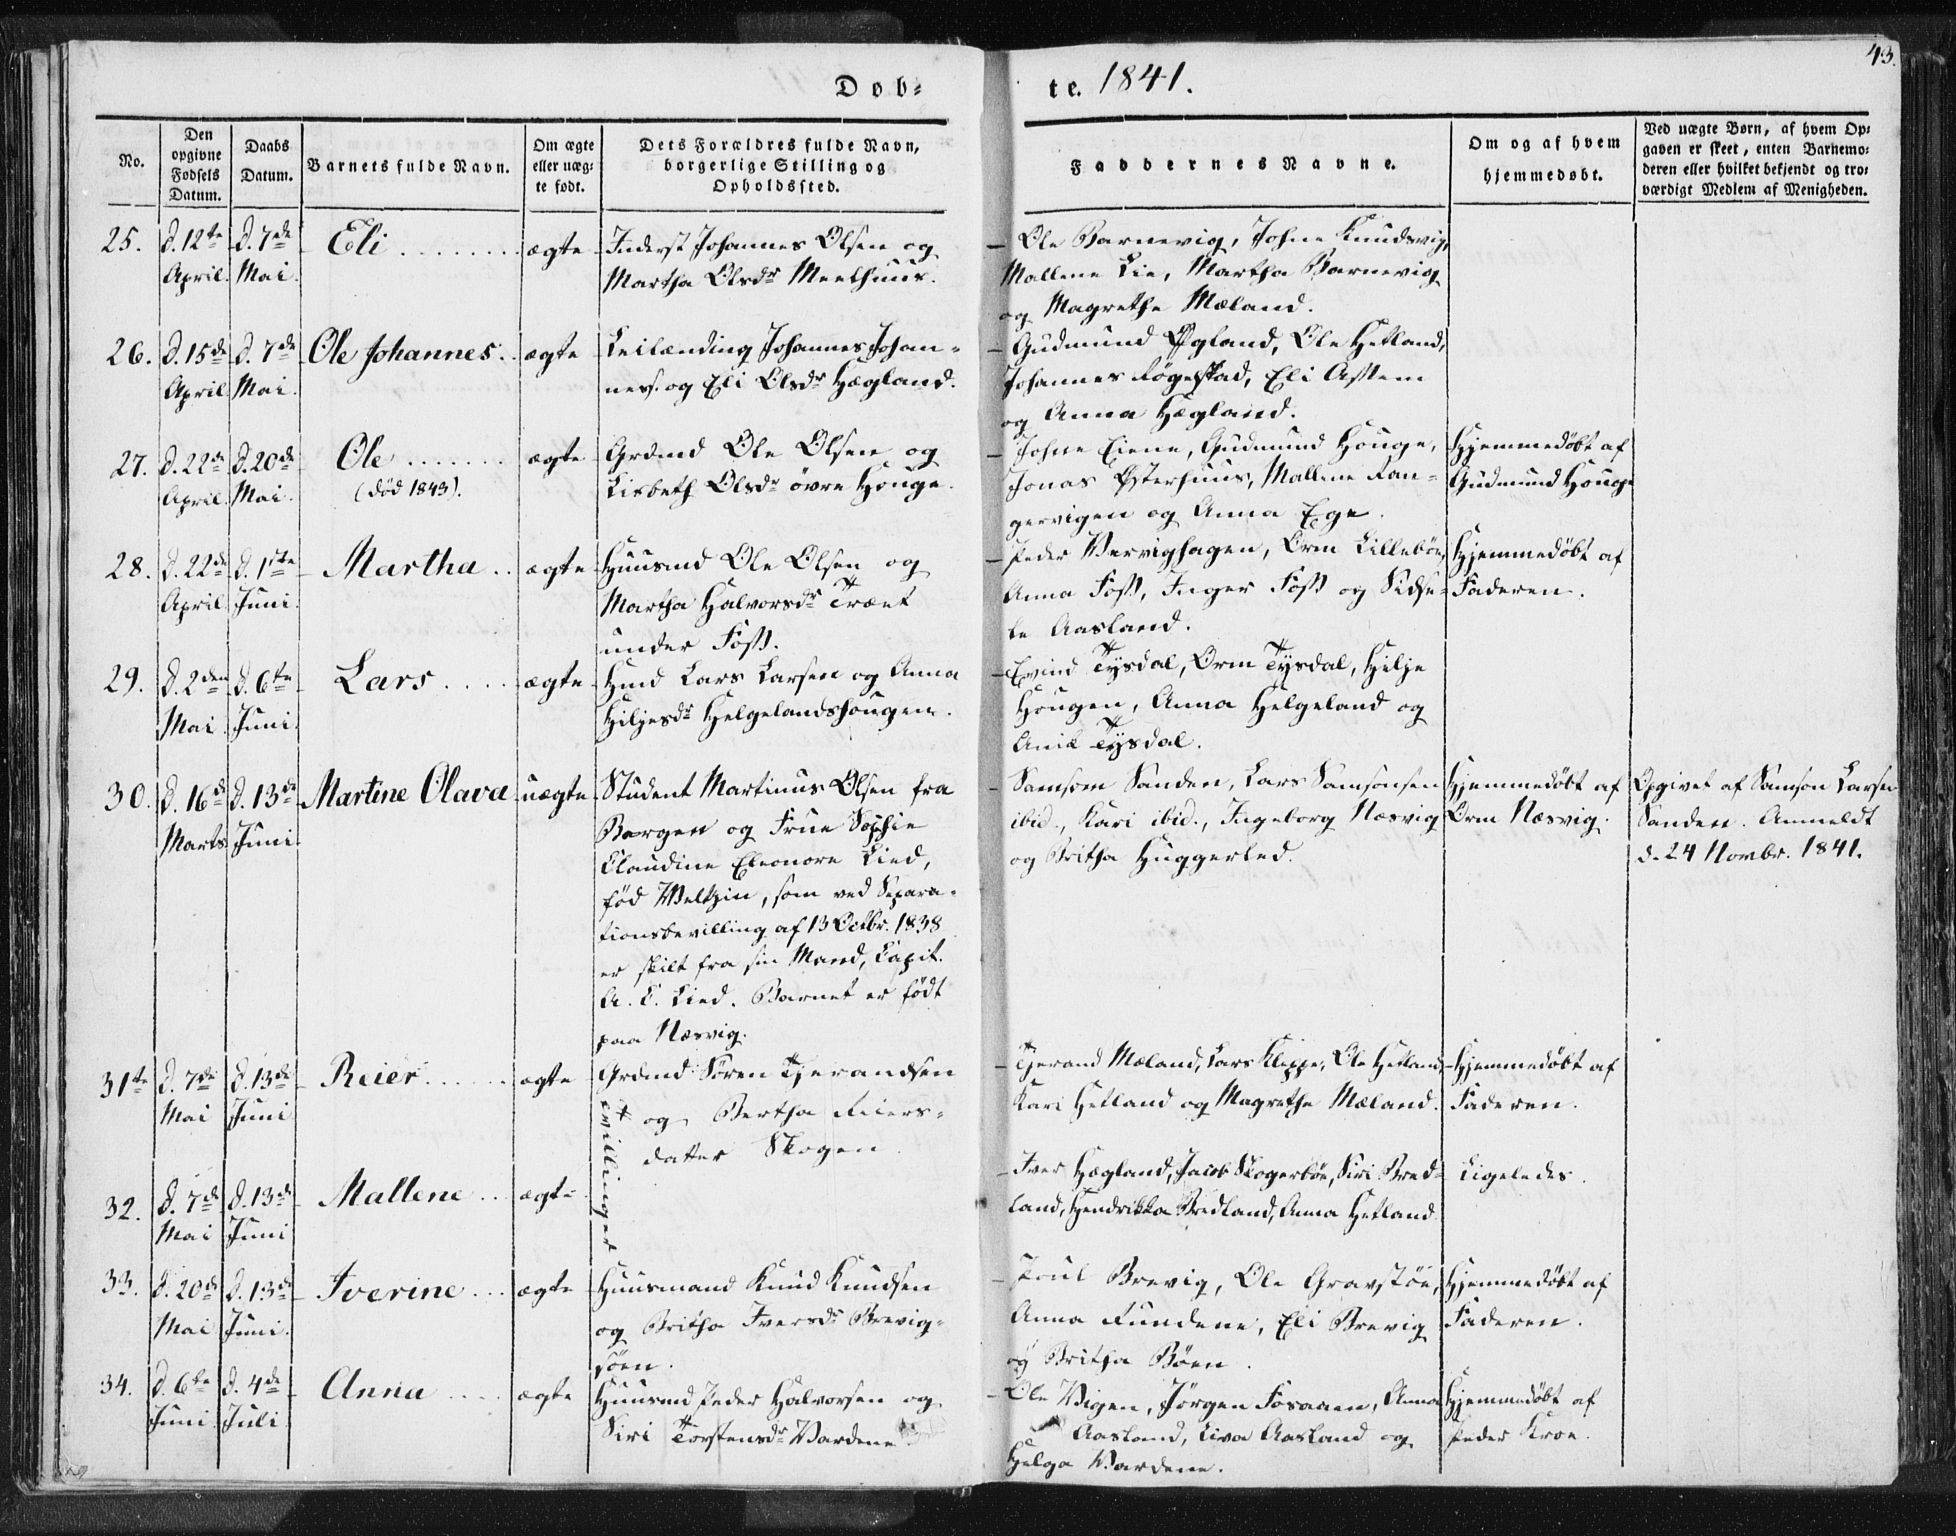 43.
Døb-
te. 1841.
No.
Den opgivne Fødsels Datum.
Daabs Datum.
Barnets fulde Navn.
Om ægte eller uæg-te født.
Dets Forældres fulde Navn, borgerlige Stilling og Opholdssted.
Faddernes Navne.
Om og af hvem hjemmedøbt.
Ved uægte Børn, af hvem Op-
gaven er skeet, enten Barnemo-
deren eller hvilket bekjendt og tro-
værdigt Medlem af Menigheden.
25. d. 12te April. d. 7de Mai. Eli ........ ægte
Inderst Johannes Olsen og
Martha Olsdr Meelhuus.
Ole Barnevig, Johne Knudsvig,
Mallene Lie, Martha Barnevig
og Magrethe Mæland.
26. d. 15de April. d. 7de Mai. Ole Johannes.. ægte
Leilænding Johannes Johan-
nes. og Eli Olsdr Hægland.
Gudmund Øgland, Ole Hetland,
Johannes Føgelstad, Eli Astem
og Anna Hægland.
27. d. 22de April. d. 20de Mai. Ole ....... ægte
(død 1843).
Grdmd Ole Olsen og
Lisbeth Olsdr øvre Houge.
Johne Eiene, Gudmund Houge,
Jonas Østerhuus, Mallene Ran-
gervigen og Anna Ege.
Hjemmedøbt af
Gudmund Houge
28. d. 22de April d. 1ste Juni. Martha .. ægte
Huusmd Ole Olsen og
Martha Halvorsdr Træet
under Foss.
Peder Vervighagen, Orm Lillebøe,
Anna Foss, Inger Foss og Sidse-
le Aasland.
Hjemmedøbt af
Faderen.
29. d. 2den Mai d. 6te Juni. Lars .... ægte
Hmd Lars Larsen og Anna
Hiljesdr Helgelandshougen.
Eivind Tysdal, Orm Tysdal, Hilje
Hougen, Anna Helgeland og
Anie Tysdal.
30. d. 16de Marts d. 13de Juni. Martine Olava uægte
Student Martinus Olsen fra
Bergen og Frue Sophie
Claudine Eleonore Lied,
fød Weltzin, som ved Separa-
tionsbevilling af 13 Octbr. 1838
er skilt fra sin Mand, Capit.
A. C. Lied. Barnet er født
paa Næsvig.
Samson Sanden, Lars Samsonsen
ibid., Kari ibid., Ingeborg Næsvig
og Britha Huggerled.
Hjemmedøbt af
Orm Næsvig.
Opgivet af Samson Larsen
Sanden. Anmeldt
d. 24 Novbr. 1841.
31te d. 7de Mai d. 13de Juni Reier ..... ægte
Grdmd Sören Tjerandsen
og Bertha Reiers-
datter Skogen.
Tvillinger
Tjerand Mæland, Lars Kleppe, Ole Hetland,
Kari Hetland og Magrethe Mæland.
Hjemmedøbt af
Faderen.
32. d. 7de Mai d. 13de Juni Mallene .. ægte
Iver Hægland, Jacob Skogerbøe, Siri Bred-
land, Hendrikka Bredland, Anna Hetland.
Ligeledes.
33. d. 20de Mai d. 13de Juni. Iverine ... ægte
Huusmand Knud Knudsen
og Britha Iversdr Brevig-
söen.
Poul Brevig, Ole Gravstöe,
Anna Fundene, Eli Brevig
og Britha Böen.
Hjemmedøbt af
Faderen.
34. d. 6te Juni d. 4de Juli Anna .... ægte
Huusmd Peder Halvorsen og
Siri Torstensdr Vardene.
Ole Vigen, Jörgen Fosaaen, Anna
Aasland, Liva Aasland og
Helga Vardene.
Hjemmedøbt af
Peder Kroe.